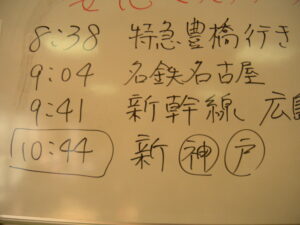 8:38 特急豊橋行き
9:04 名鉄名古屋
9:41 新幹線 広島
10:44 新神戸